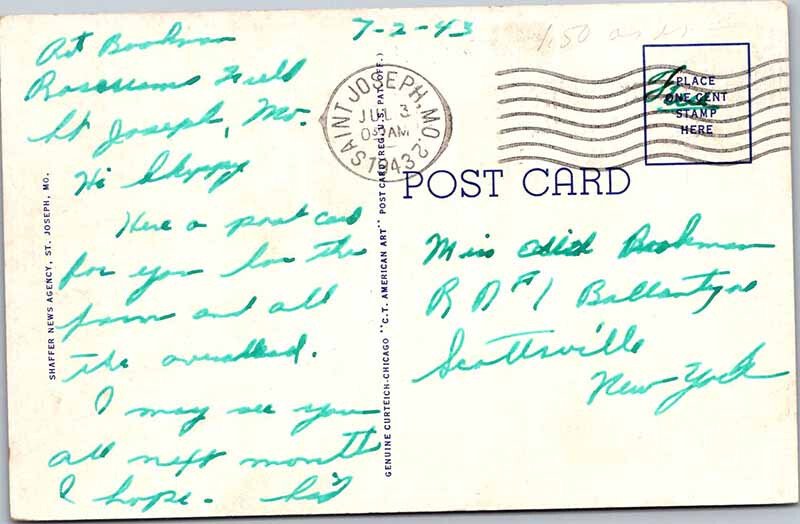 7-2-43
Art Bookman
Rosecrans Field
St Joseph, Mo.
Hi Skippy
Here a post card
for you for the
farm and all
the
I may see you
all next month
I hope.
SHAFFER NEWS AGENCY, ST. JOSEPH, MO.
GENUINE CURTEICH-CHICAGO "C.T. AMERICAN ART" POST CARD (REG. U.S. PAT. OFF.)
SAINT JOSEPH, MO. 2
JUL 3
AM
1943
Free
PLACE
ONE CENT
STAMP
HERE
POST CARD
Miss Edith Bookman
R D #1 Ballantyne
Scottsville
New York